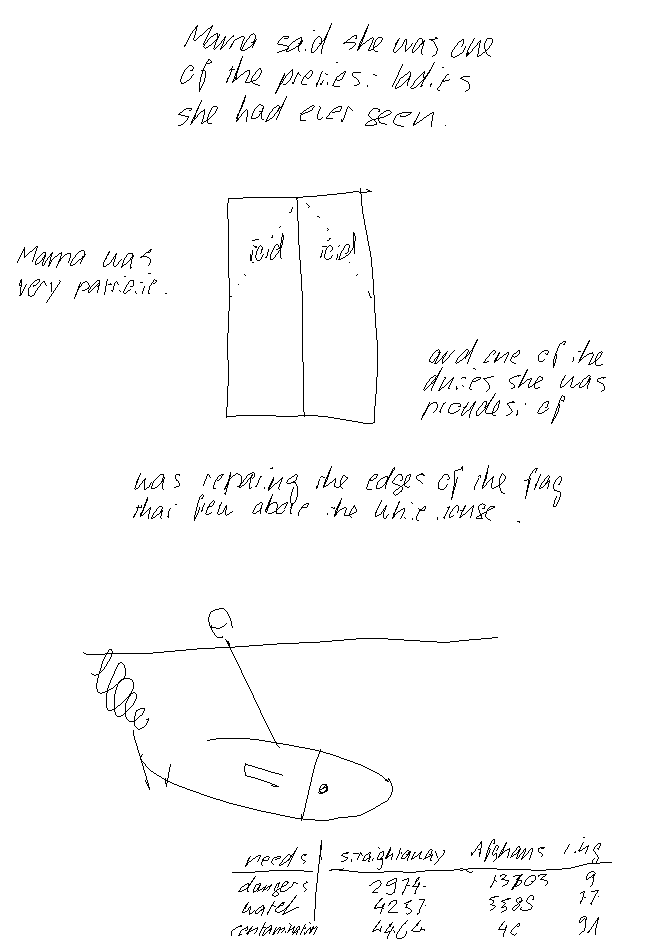 Mama said she was one
of the prettiest ladies
she had ever seen.
Mama was
very patriotic.
and one of the
duties she was
proudest of
was repairing the edges of the flag
that flew above the White House.
needs straightaway Afghans ring
dangers 2974 13303 9
water 4257 5385 77
contamination 4464 40 91